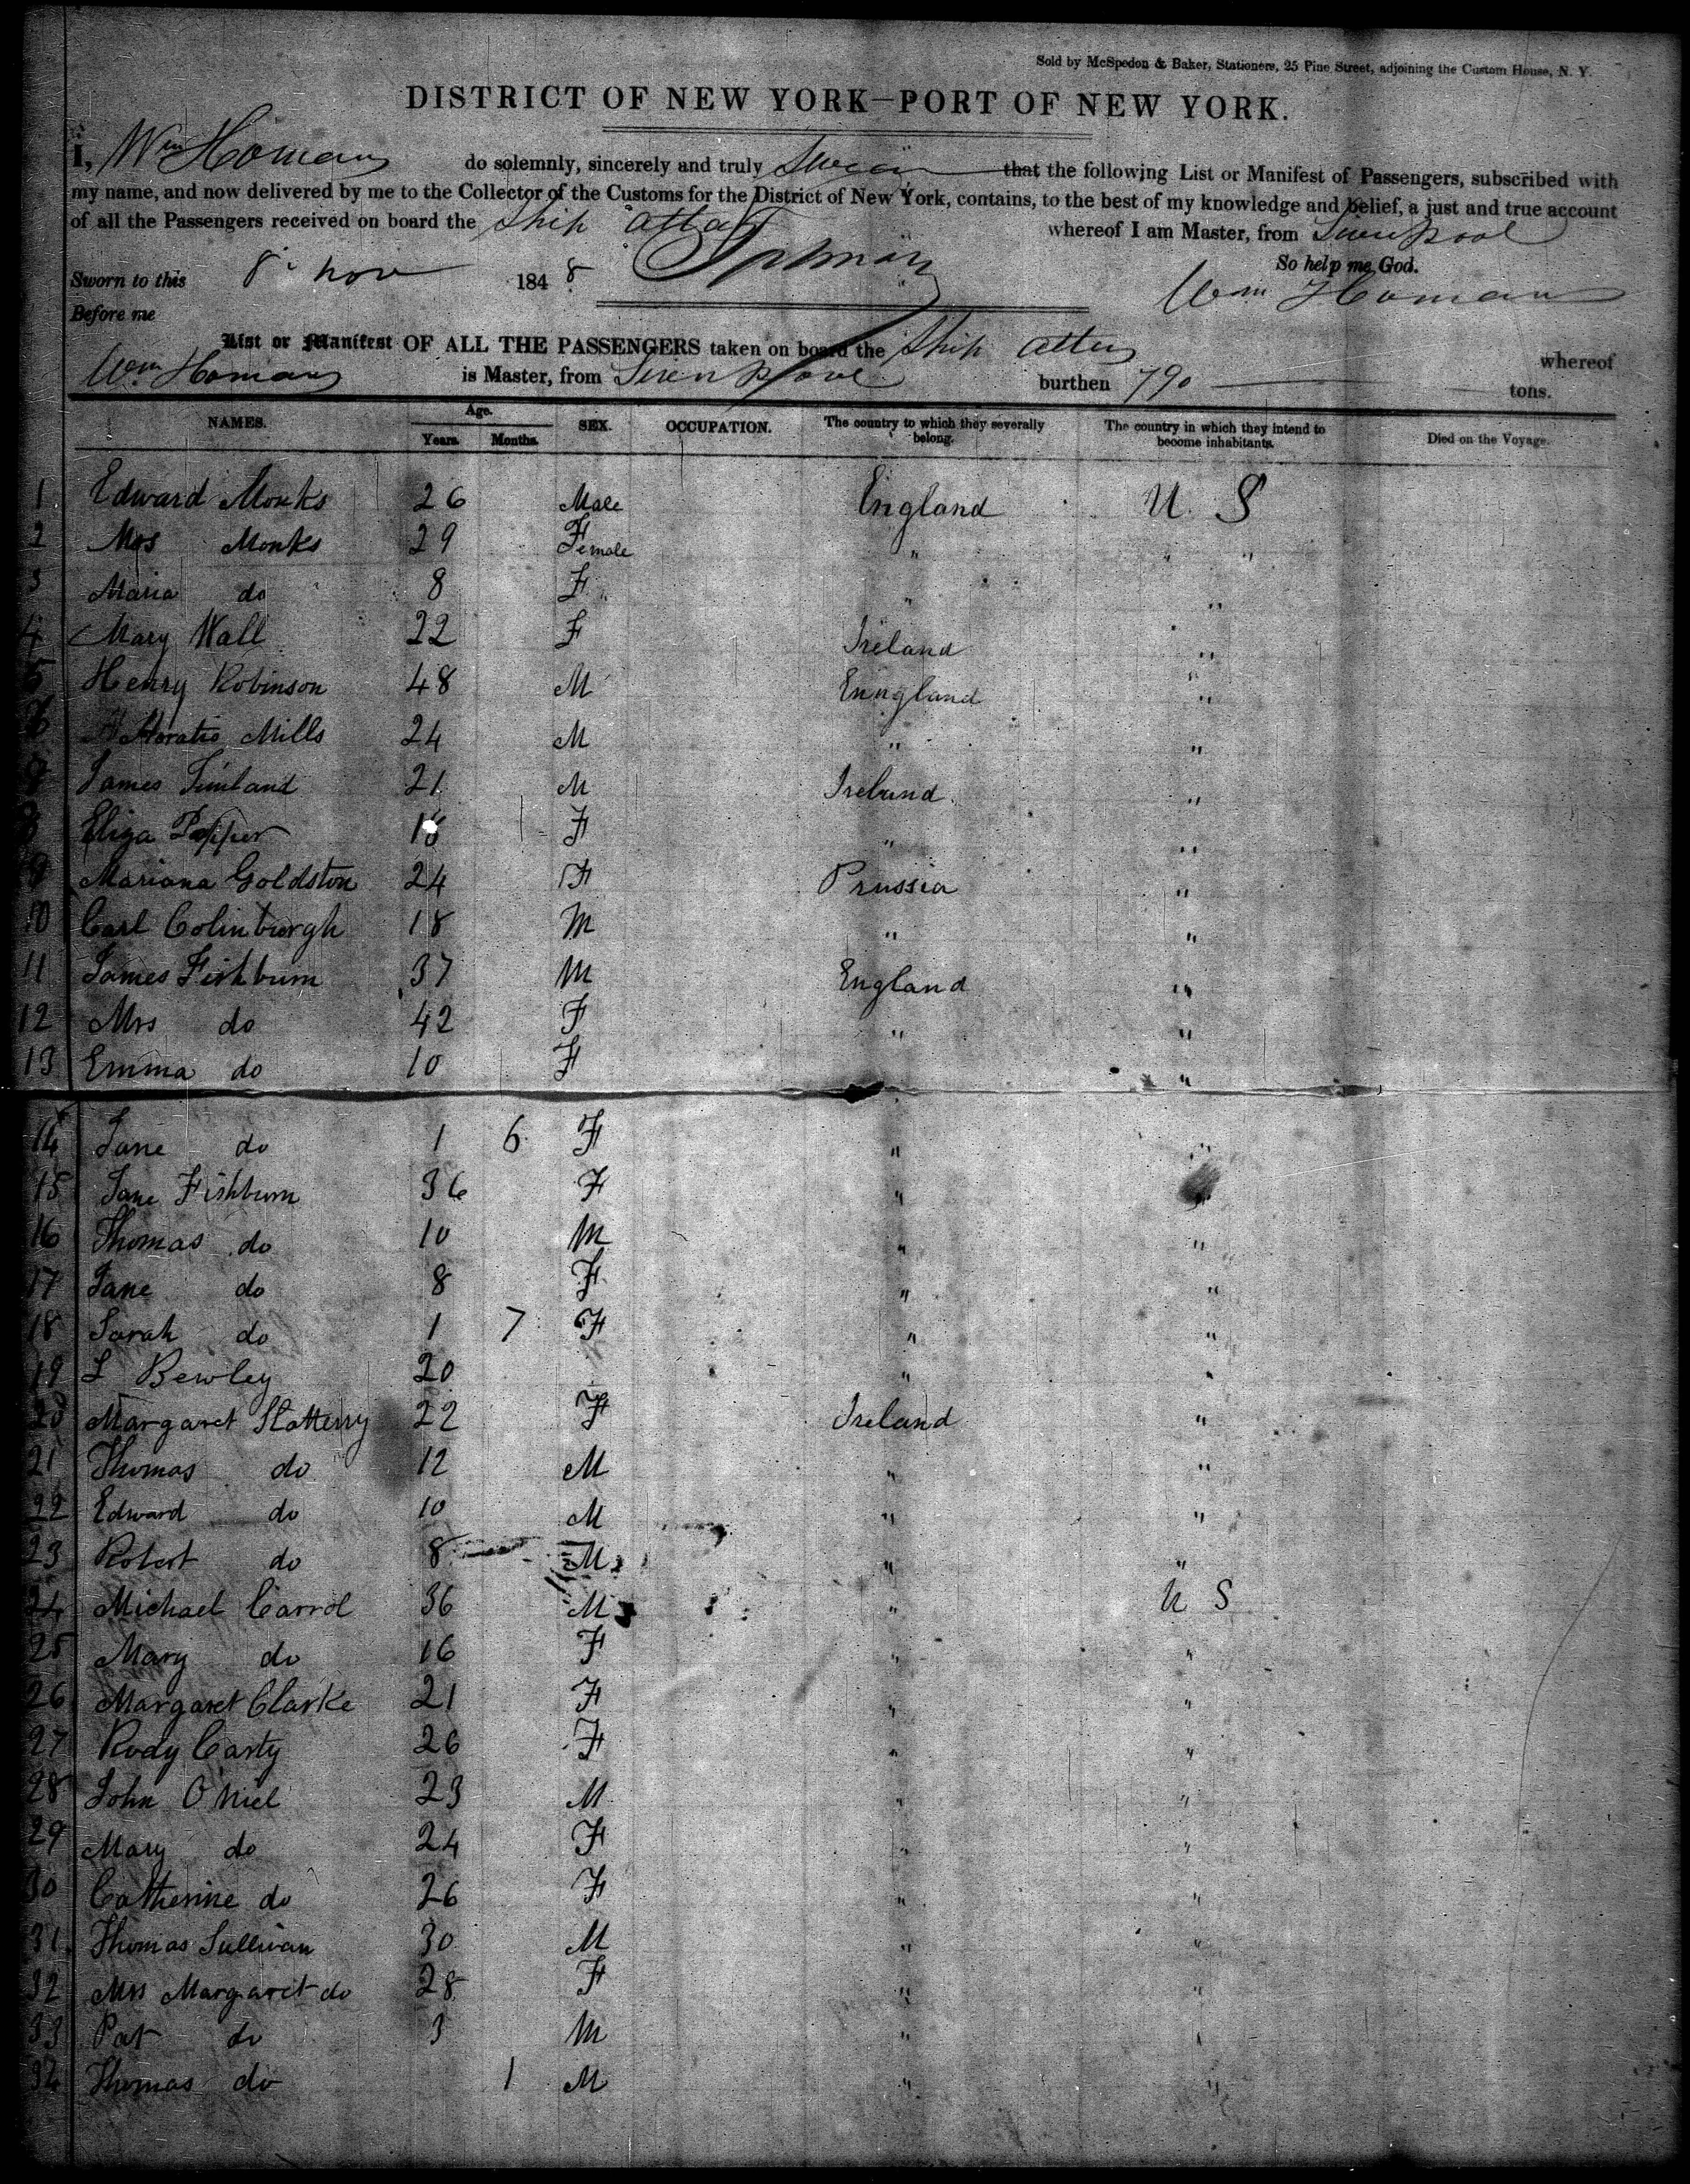 Sold by McSpedon & Baker, Stationers, 25 Pine Street, adjoining the Custom House, N. Y.
DISTRICT OF NEW YORK—PORT OF NEW YORK.
I, Wm Homan do solemnly, sincerely and truly Swear that the following List or Manifest of Passengers, subscribed with
my name, and now delivered by me to the Collector of the Customs for the District of New York, contains, to the best of my knowledge and belief, a just and true account
of all the Passengers received on board the Ship whereof I am Master, from Liverpool
So help me God.
Sworn to this 8th Nov 1848
Wm Homan
Before me
List or Manifest OF ALL THE PASSENGERS taken on board the Ship whereof
Wm Homan is Master, from Liverpool burthen 790 tons.
NAMES. Age. Years. Months. SEX. OCCUPATION. The country to which they severally belong. The country in which they intend to become inhabitants. Died on the Voyage.
1 Edward Monks 26 Male England U. S
2 Mrs Monks 29 Female " " "
3 Maria do 8 F " "
4 Mary Wall 22 F Ireland "
5 Henry Robinson 48 M Enngland "
6 Horatio Mills 24 M " "
7 James 21 M Ireland "
8 Eliza Pepper F " "
9 Mariana Goldston 24 F Prussia "
10 Carl Colinburgh 18 M " "
11 James Fishburn 37 M England "
12 Mrs do 42 F " "
13 Emma do 10 F "
14 Jane do 1 6 F " "
15 Jane Fishburn 36 F " "
16 Thomas do 10 M " "
17 Jane do 8 F " "
18 Sarah do 1 7 F " "
19 Bewley 20 " "
20 Margaret Slatterry 22 F Ireland "
21 Thomas do 12 M " "
22 Edward do 10 M " "
23 Robert do 8 M " "
24 Michael Carrol 36 M " U S
25 Mary do 16 F " "
26 Margaret Clarke 21 F " "
27 Rody Carty 26 F " "
28 John O'Niel 23 M " "
29 Mary do 24 F " "
30 Catherine do 26 F " "
31 Thomas Sullivan 30 M " "
32 Mrs Margaret do 28 F " "
33 Pat do 3 M " "
34 Thomas do 1 M " "